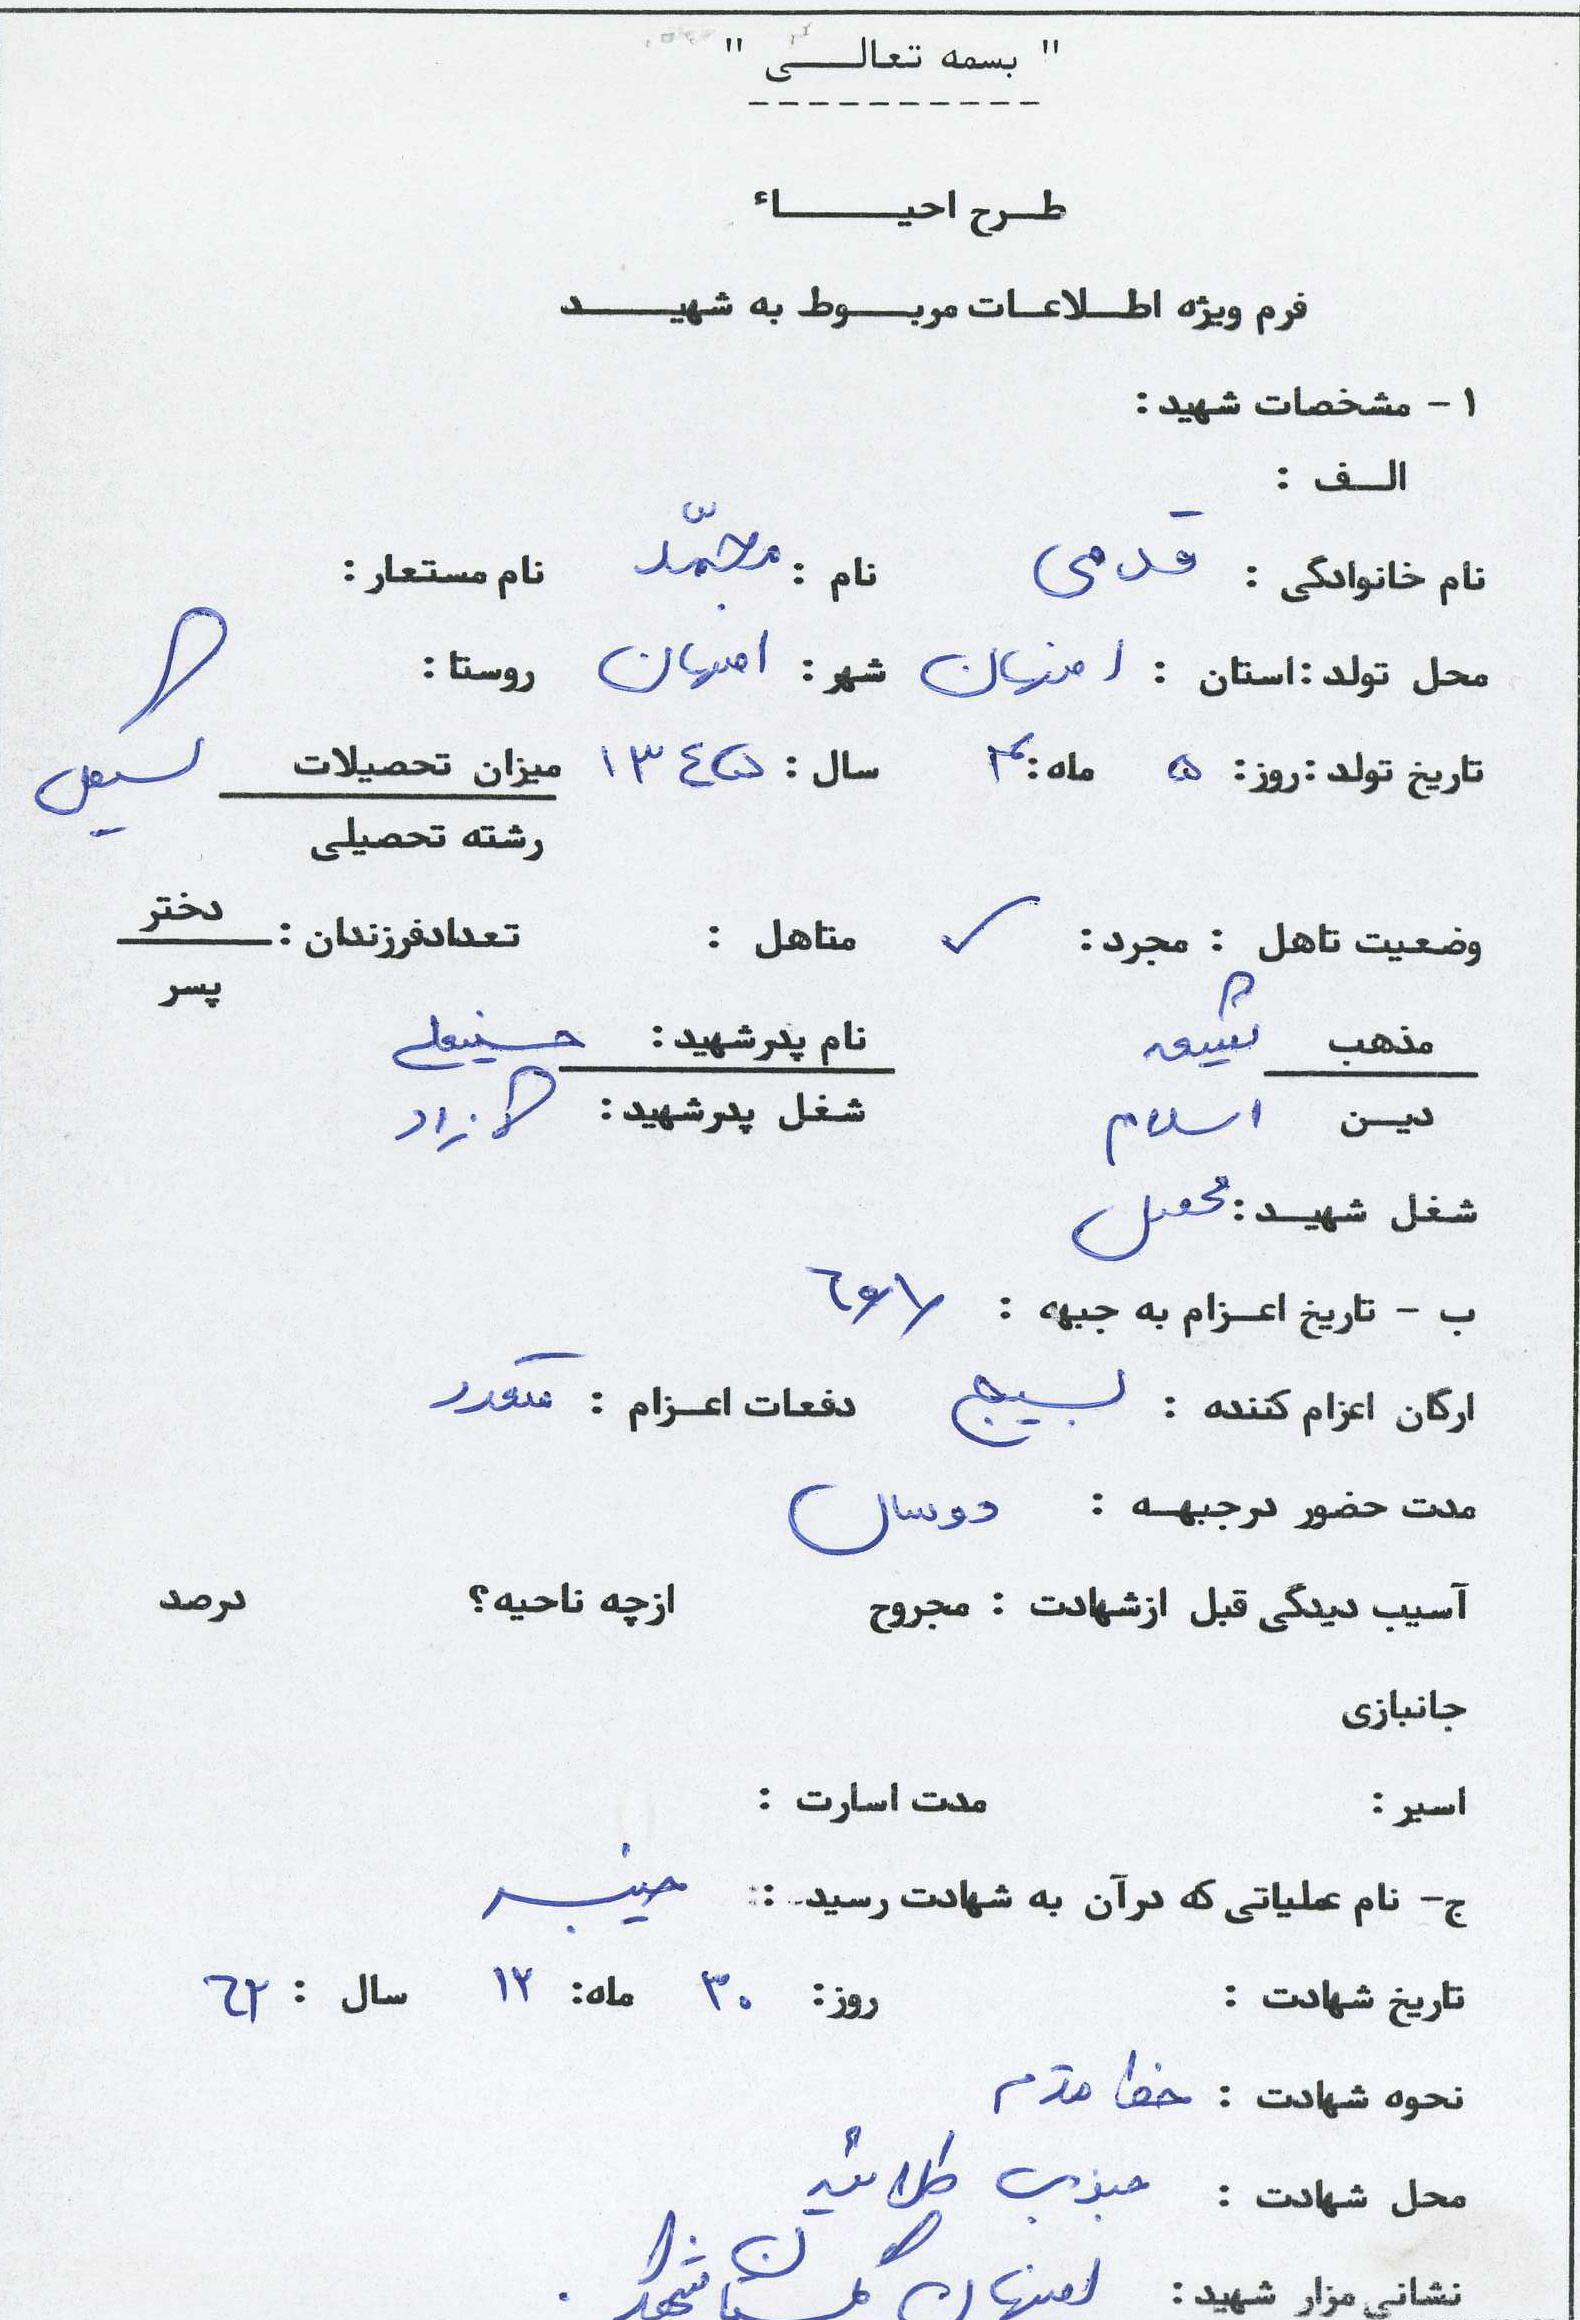 " بسمه تعالی "
طرح احیاء
فرم ویژه اطلاعات مربوط به شهید
۱ - مشخصات شهید :
الف :
نام خانوادگی : قدمی نام : محمّد نام مستعار :
محل تولد : استان : اصفهان شهر : اصفهان روستا :
تاریخ تولد : روز : ۵ ماه : ۳ سال : ۱۳۴۵ میزان تحصیلات سیکل
رشته تحصیلی
وضعیت تاهل : مجرد : ✓ متاهل : تعدادفرزندان : دختر
پسر
مذهب شیعه نام پدرشهید : حسینعلی
دین اسلام شغل پدرشهید : آزاد
شغل شهید : محصل
ب - تاریخ اعزام به جبهه :
ارگان اعزام کننده : بسیج دفعات اعزام : متعدد
مدت حضور درجبهه : دو سال
آسیب دیدگی قبل ازشهادت : مجروح ازچه ناحیه؟ درصد
جانبازی
اسیر : مدت اسارت :
ج- نام عملیاتی که درآن به شهادت رسید : خیبر
تاریخ شهادت : روز : ۳۰ ماه : ۱۲ سال : ۶۲
نحوه شهادت : خط مقدم
محل شهادت : جنوب طلائیه
نشانی مزار شهید : اصفهان گلستان شهدا .